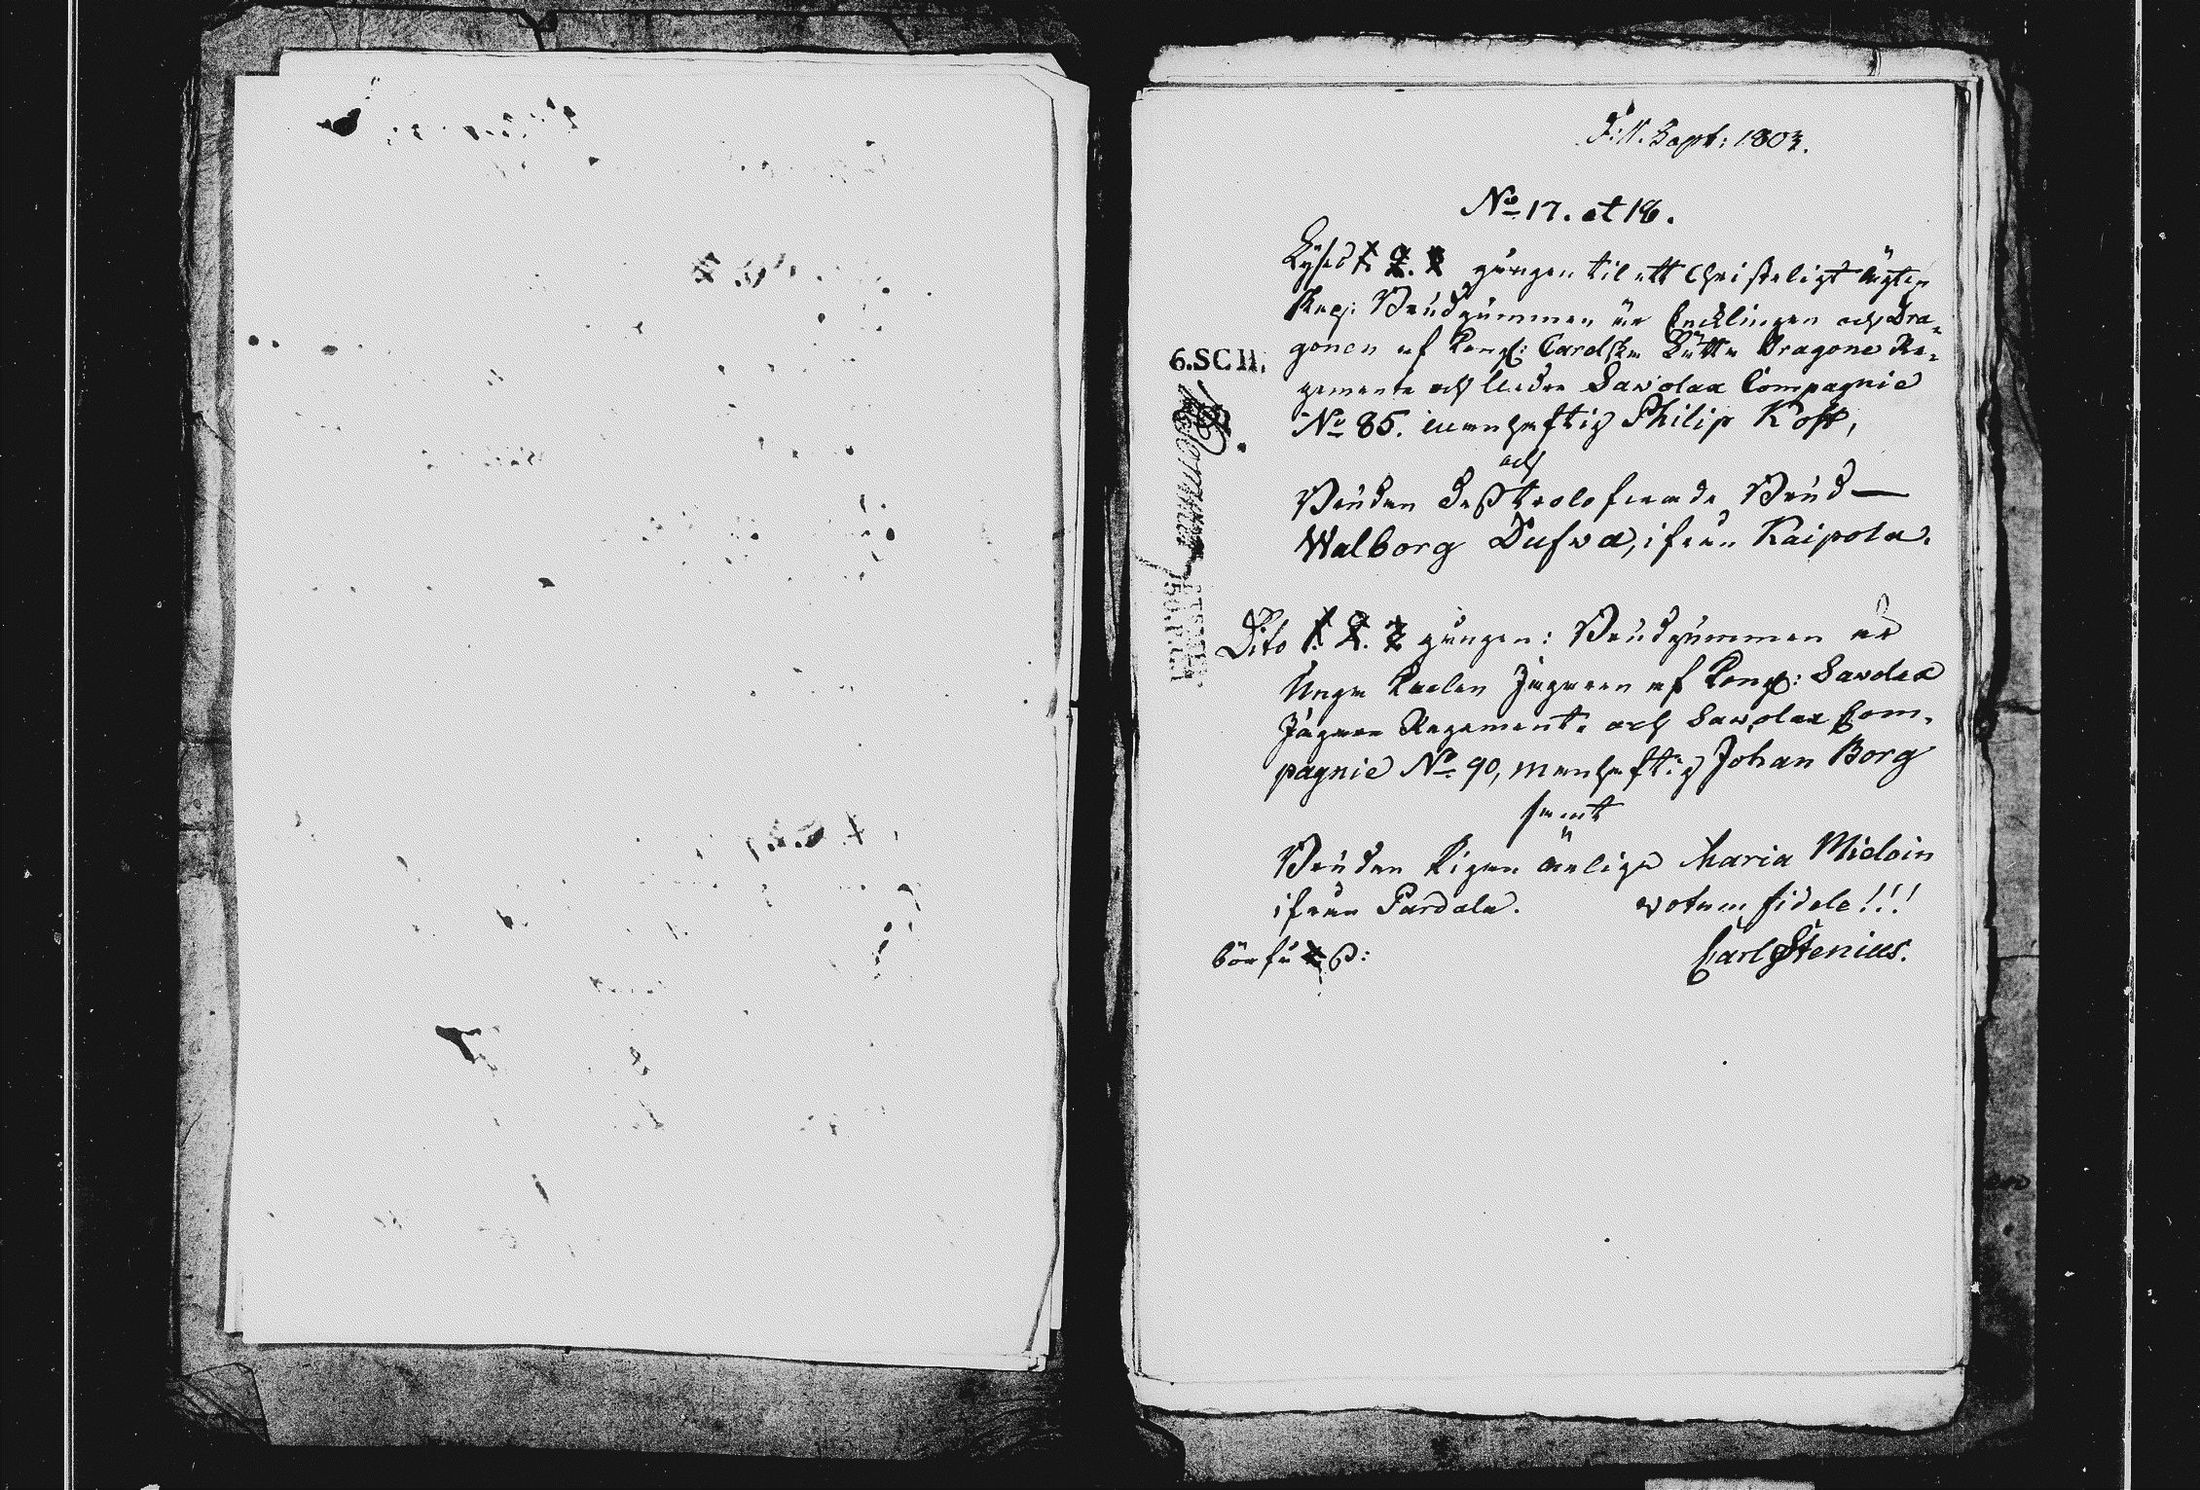 d: 11. Sept: 1803.
No 17. et 18.
Lyses 1. 2. 3 gången til ett Christeligt ägten
skap: Brudgummen är Encklingen och Dra=
gonen af Kongl: Carelska Lätta Dragone Re=
6.SCH.
gemente och Savolax Compagnie
No 85. manhaftig Philip Kost,
och
Bruden Dess trolofwade Brud —
Walborg Dufwa, ifrån Kaipola.
Dito 1. 2. 3 gången: Brudgummen är
Unga Karlen Jägaren af Kongl: Savolax
Jägare Regemente och Savolax Com-
pagnie No 90, manhaftig Johan Borg
samt
Bruden Pigan ärliga Maria Midoin
ifrån Pardala. votum fidele!!!
Carl Stenius.